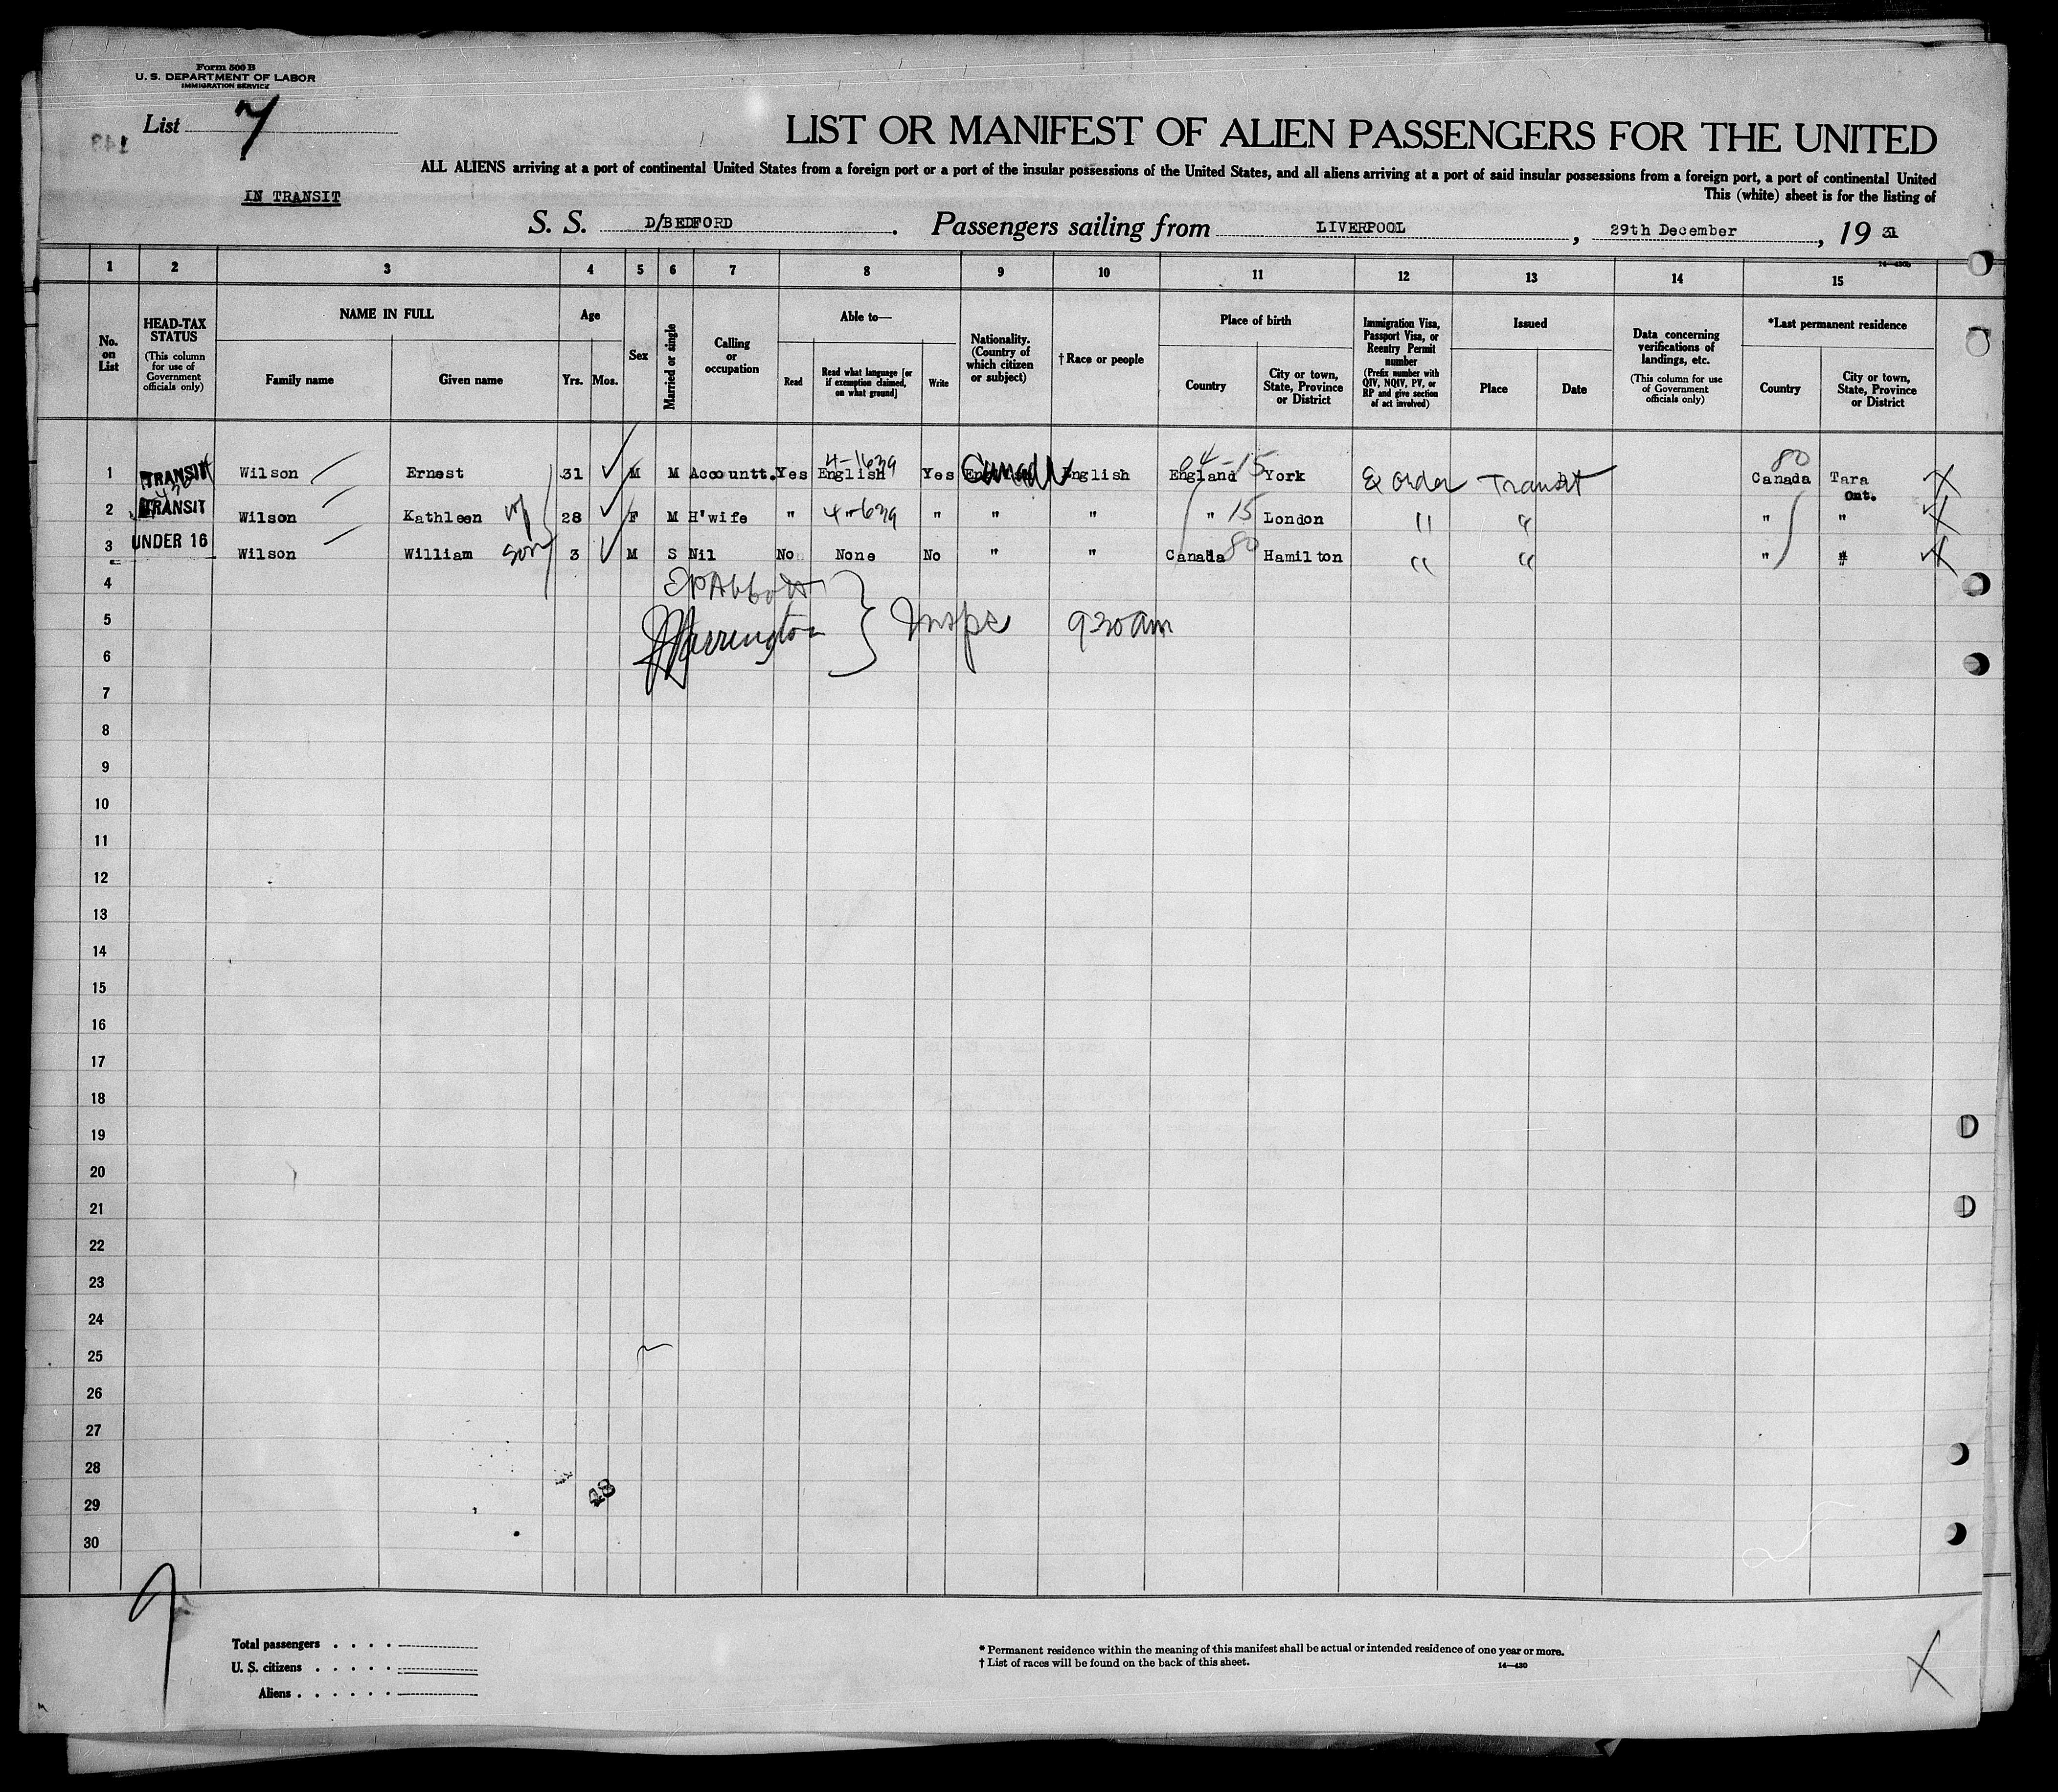 Form 500 B
U. S. DEPARTMENT OF LABOR
IMMIGRATION SERVICE
List 7
LIST OR MANIFEST OF ALIEN PASSENGERS FOR THE UNITED
ALL ALIENS arriving at a port of continental United States from a foreign port or a port of the insular possessions of the United States, and all aliens arriving at a port of said insular possessions from a foreign port, a port of continental United
This (white) sheet is for the listing of
IN TRANSIT
S. S. D/BEDFORD. Passengers sailing from LIVERPOOL, 29th December, 19 31
1 2 3 4 5 6 7 8 9 10 11 12 13 14 15
No. on List
HEAD-TAX STATUS
(This column for use of Government officials only)
NAME IN FULL
Family name
Given name
Age
Yrs.
Mos.
Sex
Married or single
Calling or occupation
Able to—
Read
Read what language [or if exemption claimed, on what ground]
Write
Nationality. (Country of which citizen or subject)
†Race or people
Place of birth
Country
City or town, State, Province or District
Immigration Visa, Passport Visa, or Reentry Permit number
(Prefix number with QIV, NQIV, PV, or RP and give section of act involved)
Issued
Place
Date
Data concerning verifications of landings, etc.
(This column for use of Government officials only)
*Last permanent residence
Country
City or town, State, Province or District
1 TRANSIT Wilson Ernest 31 M M Accountt. Yes English Yes Canada English England 15 York Ex order Transit 80 Canada Tara Ont.
2 TRANSIT Wilson Kathleen wf 28 F M H'wife " " " " " 15 London " " " "
3 UNDER 16 Wilson William son 3 M S Nil No None No " " Canada 80 Hamilton " " " "
4
5 Inspc 9 30 am
6
7
8
9
10
11
12
13
14
15
16
17
18
19
20
21
22
23
24
25
26
27
28
29
30
48
Total passengers . . . .
U. S. citizens . . . . .
Aliens . . . . . .
* Permanent residence within the meaning of this manifest shall be actual or intended residence of one year or more.
† List of races will be found on the back of this sheet.
14—430